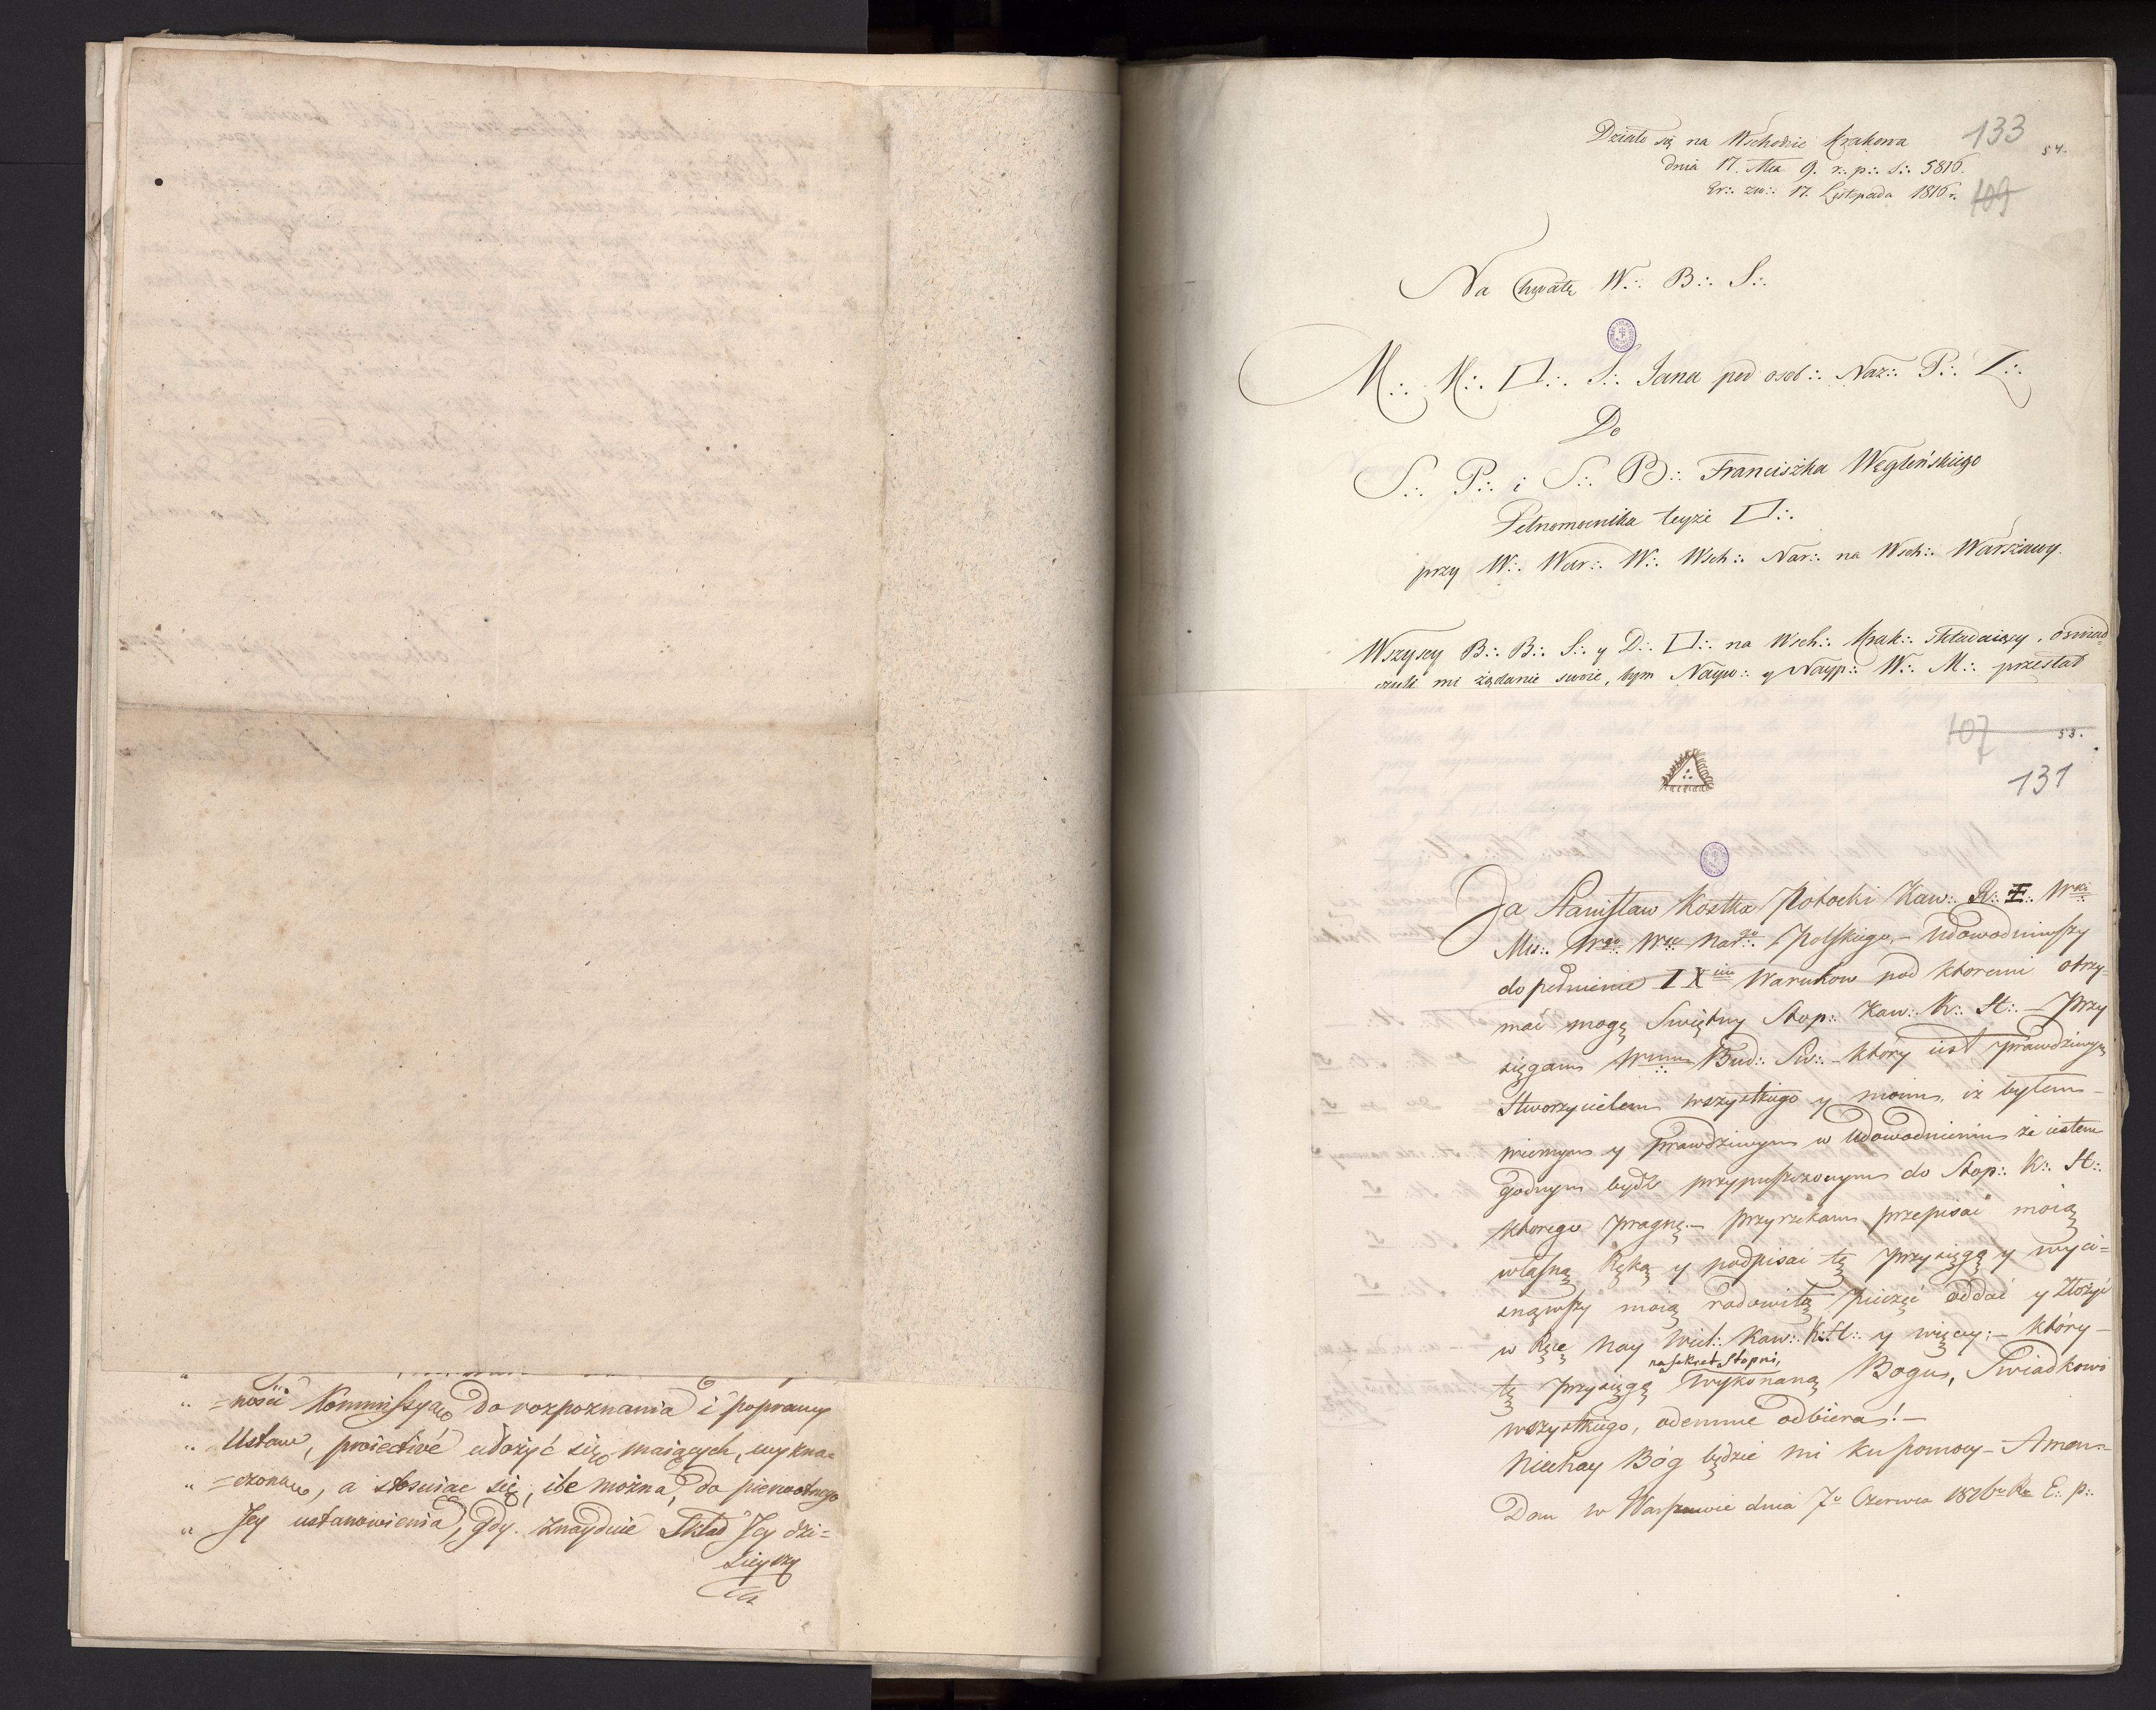 „ =ności Kommissyą do rozpoznania i poprawy
„ Ustaw, proiectivé ułożyć się maiących, wyzna=
„ =czoną, a stosuiąc się, ile można, do pierwotnego
„ Jey ustanowienia, gdy znayduie Skład Jey dzi=
sieyszy
Działo się na Wschodzie Krakowa
dnia 17. Mca 9. r:. p:. S:. 5816.
Er:. zw:. 17. Listopada 1816 r.
133
54.
109
Na Chwałę W:. B:. S:.
M:. K:. □:. S:. Jana pod osob:. Naz:. P:. Z:.
Do
S:. P:. i S:. B:. Franciszka Węgleńskiego
Pełnomocnika teyże □:.
przy W:. War:. W:. Wsch:. Nar:. na Wsch:. Warszawy.
Wszyscy B:. B:. S:. y D:. □:. na Wsch:. Krak:. składaiący, oświad=
czyli mi żądanie swoie, bym Nayw:. y Nayp:. W:. M:. przesłał
107
53.
131
Ja Stanisław Kostka Potocki Kaw:. R:. ✠:. Wki
Mis:. Wgo Wsc Nargo Polskiego, – Udowodniwszy
dopełnienie IXiu Warunkow pod ktoremi otrzy=
mać mogę Swiętny Stop:. Kaw:. K:. St:. – Przy
sięgam Wmu Bud:. Sw:. – który iest prawdziwym
Stworzycielem wszystkiego y moim, iż byłem –
wiernym y prawdziwym w Udowodnieniu że iestem
godnym bydź przypuszczonym do Stop:. K:. St:.
ktorego pragnę. – przyrzekam przepisać moią
własną Ręką y podpisać tę przysięgę y wyci=
snąwszy moią rodowitą pieczęć oddać y złożyć
w Ręce Nay Wiel:. Kaw:. K:. St:. y więcey: – który –
na sekret Stopni,
tę przysięgę wykonaną Bogu, Swiadkowi
wszystkiego, odemnie odbiera! –
Niechay Bóg będzie mi ku pomocy – Amen –
Dan w Warszawie dnia 7o Czerwca 1816o Ro E:. p:.